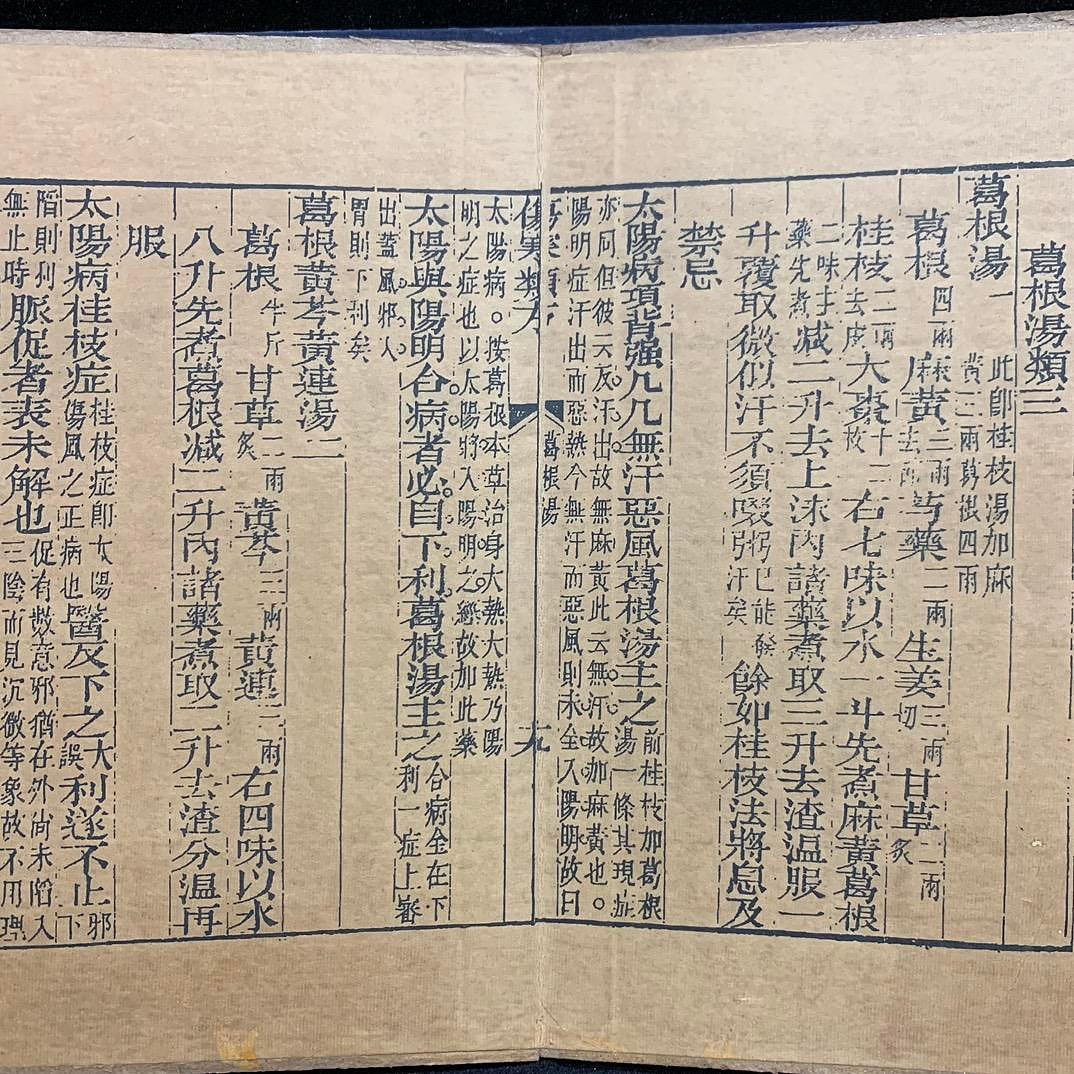 葛根湯類三
葛根湯一 此即桂枝湯加麻黃三兩葛根四兩
葛根四兩 麻黃三兩去節 芍藥二兩 生姜三兩切 甘草二兩炙
桂枝二兩去皮 大棗十二枚 右七味以水一斗先煮麻黃葛根
二味 藥先煮 減二升去上沫內諸藥煮取三升去渣温服一
升覆取微似汗不須啜粥 已能發汗矣 餘如桂枝法將息及
禁忌
太陽病項背強几几無汗惡風葛根湯主之 前桂枝加葛根湯一條其現症
亦同但彼云反汗出故無麻黃此云無汗故加麻黃也。
陽明症汗出而惡熱今無汗而惡風則未全入陽明故曰
傷寒類方 葛根湯 九
太陽病。按葛根本草治身大熱大熱乃陽
明之症也以太陽將入陽明之經故加此藥
太陽與陽明合病者必自下利葛根湯主之 合病全在下利一症上審
出蓋風邪入
胃則下利矣
葛根黃芩黃連湯二
葛根半斤 甘草二兩炙 黃芩三兩 黃連三兩 右四味以水
八升先煮葛根減二升內諸藥煮取二升去渣分温再
服
太陽病桂枝症 桂枝症即太陽傷風之正病也 醫反下之 大誤 利遂不止 邪下
陷則利無止時 脈促者表未解也 促有數意邪猶在外尚未陷入三陰而見沉微等象故不用理